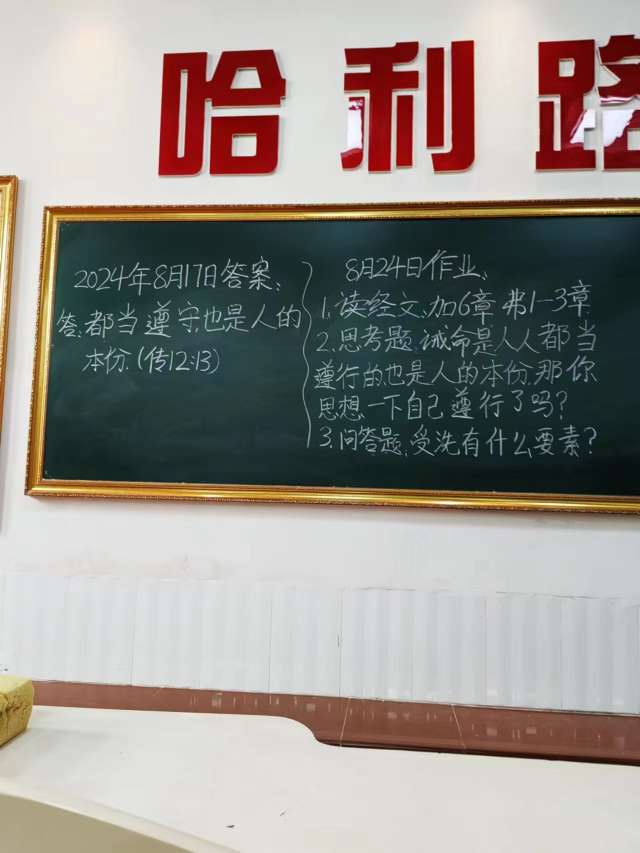 哈利路
2024年8月17日答案:
答:都当遵守也是人的
本份.(传12:13)
8月24日作业:
1.读经文.加6章 弗1-3章
2.思考题.诫命是人人都当
遵行的.也是人的本份.那你
思想一下自己遵行了吗?
3.问答题:受洗有什么要素?